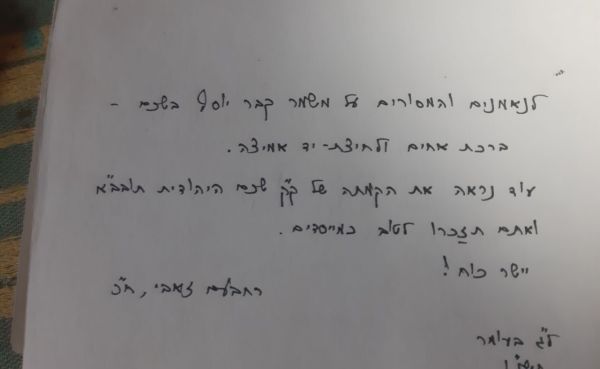 בס"ד
לנאמנים והמסורים על משמר קבר יוסף בשכם -
ברכת אחים ולחיצת-יד אמיצה.
עוד נראה את הקמתה של ק"ק שכם היהודית תובב"א
ואתם תזכרו לטוב כמייסדים.
יישר כוח!
רחבעם זאבי, ח"כ
ל"ג בעומר